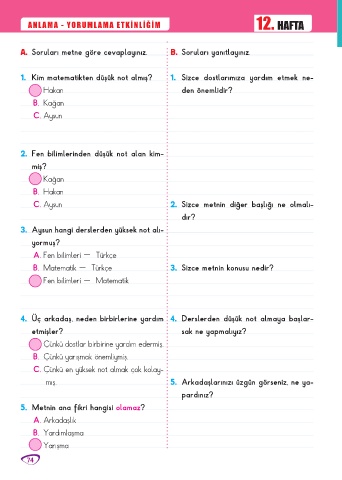 ANLAMA - YORUMLAMA ETKİNLİĞİM
12. HAFTA
A. Soruları metne göre cevaplayınız.
1. Kim matematikten düşük not almış?
Hakan
B. Kağan
C. Aysun
2. Fen bilimlerinden düşük not alan kim-
miş?
Kağan
B. Hakan
C. Aysun
3. Aysun hangi derslerden yüksek not alı-
yormuş?
A. Fen bilimleri — Türkçe
B. Matematik — Türkçe
Fen bilimleri — Matematik
4. Üç arkadaş, neden birbirlerine yardım
etmişler?
Çünkü dostlar birbirine yardım edermiş.
B. Çünkü yarışmak önemliymiş.
C. Çünkü en yüksek not almak çok kolay-
mış.
5. Metnin ana fikri hangisi olamaz?
A. Arkadaşlık
B. Yardımlaşma
Yarışma
B. Soruları yanıtlayınız.
1. Sizce dostlarımıza yardım etmek ne-
den önemlidir?
2. Sizce metnin diğer başlığı ne olmalı-
dır?
3. Sizce metnin konusu nedir?
4. Derslerden düşük not almaya başlar-
sak ne yapmalıyız?
5. Arkadaşlarınızı üzgün görseniz, ne ya-
pardınız?
74